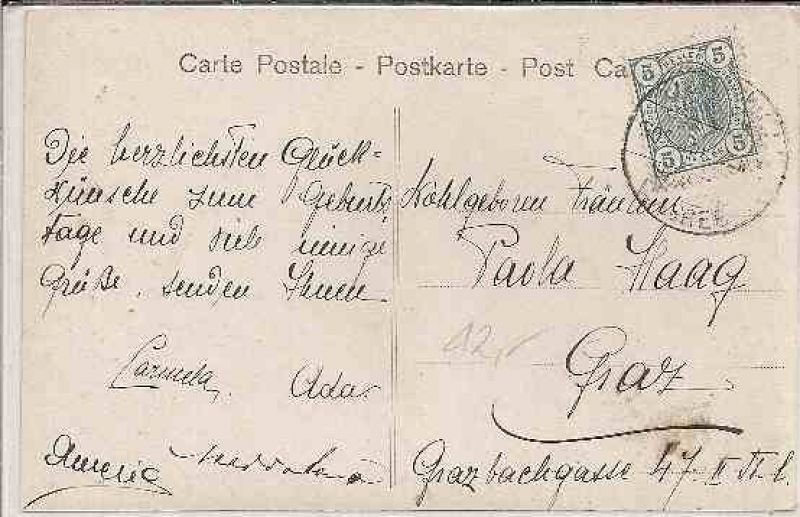 Carte Postale - Postkarte - Post Ca
5 5
5 5
Die herzlichsten Glück-
wünsche zum Geburts
tage und viele innige
Grüße, senden Ihnen
Carmela, Ada
Amelia
Wohlgeboren Fräulein
Paola Haag
12,
Graz
Grazbachgasse 47 II